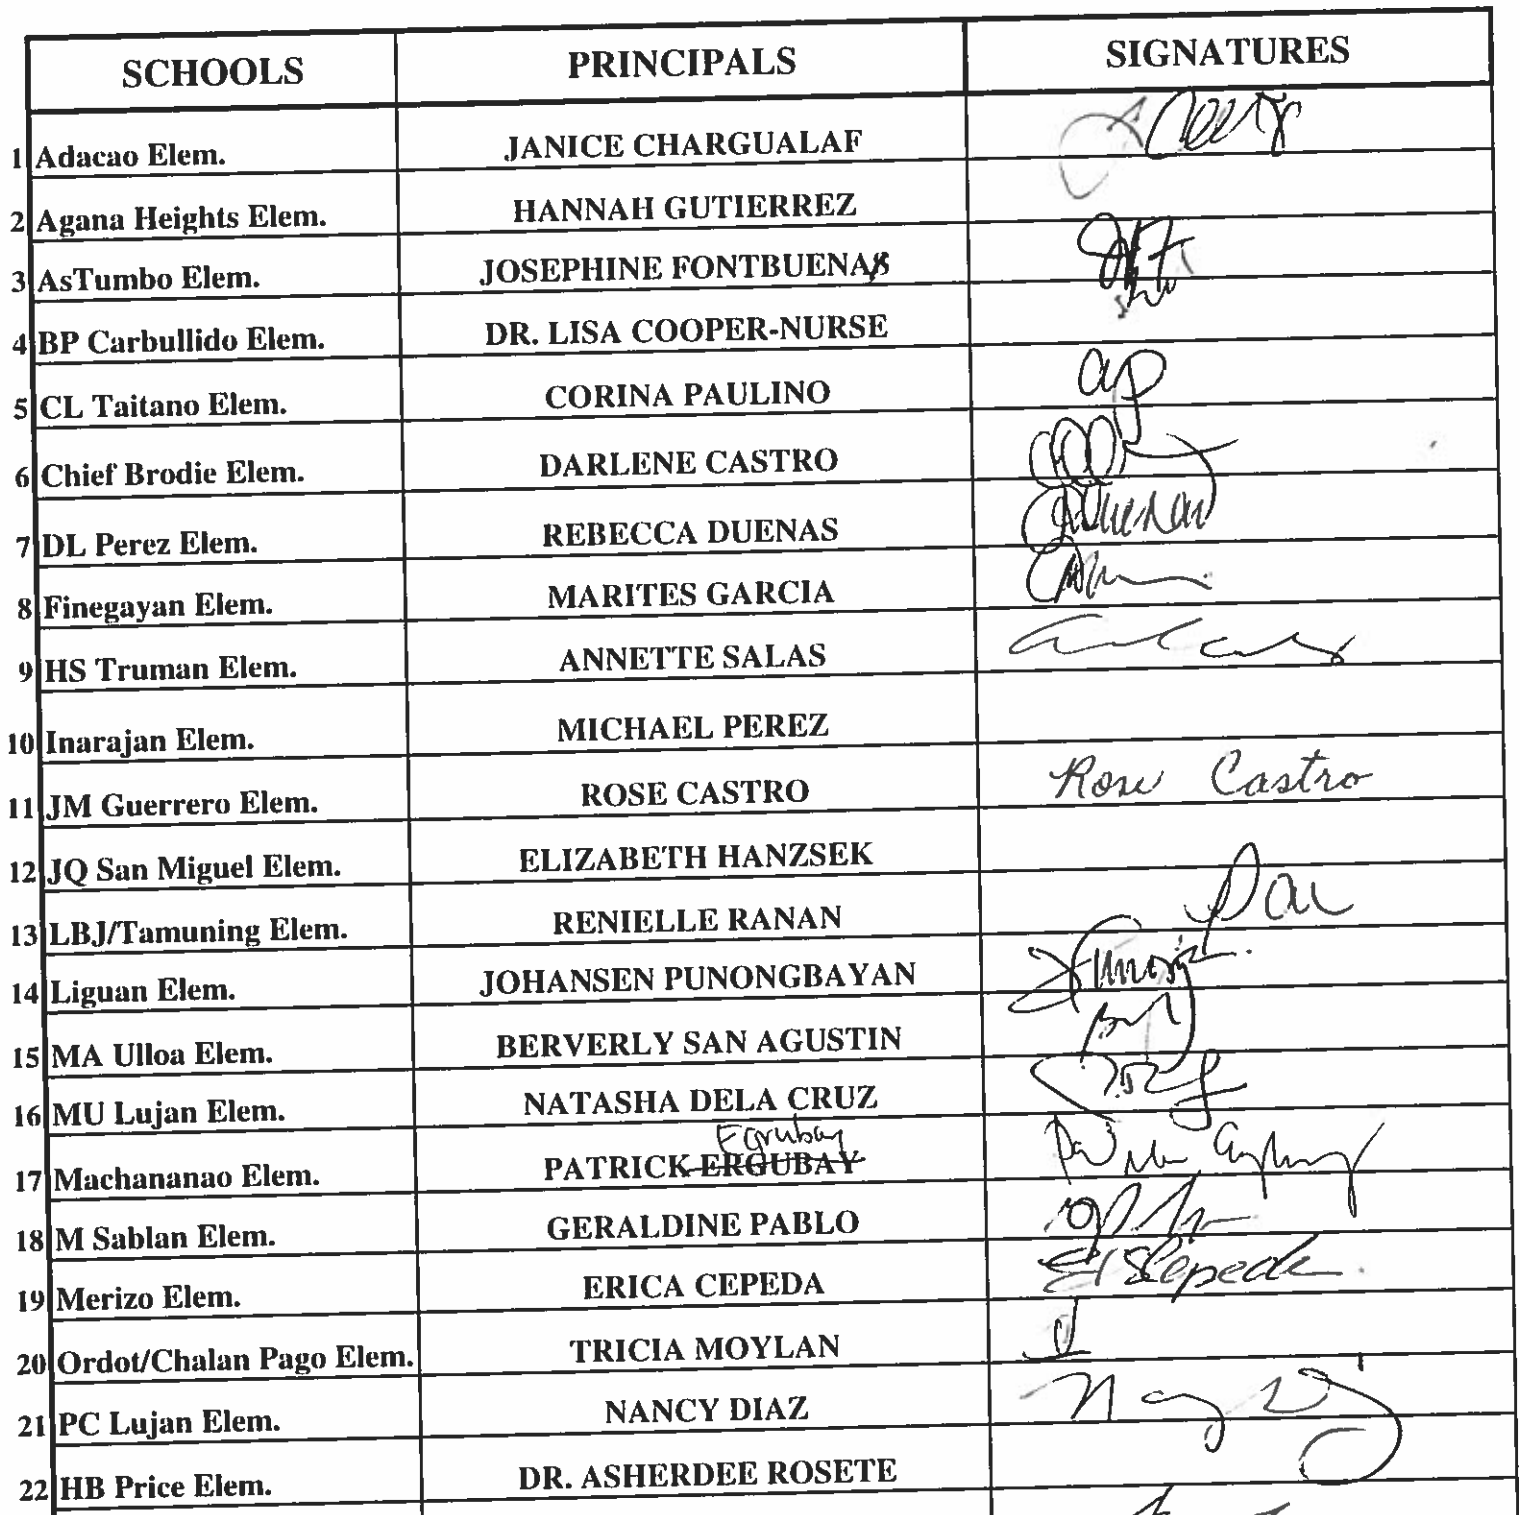 SCHOOLS PRINCIPALS SIGNATURES
1 Adacao Elem. JANICE CHARGUALAF
2 Agana Heights Elem. HANNAH GUTIERREZ
3 AsTumbo Elem. JOSEPHINE FONTBUENA
4 BP Carbullido Elem. DR. LISA COOPER-NURSE
5 CL Taitano Elem. CORINA PAULINO
6 Chief Brodie Elem. DARLENE CASTRO
7 DL Perez Elem. REBECCA DUENAS
8 Finegayan Elem. MARITES GARCIA
9 HS Truman Elem. ANNETTE SALAS
10 Inarajan Elem. MICHAEL PEREZ
11 JM Guerrero Elem. ROSE CASTRO Rose Castro
12 JQ San Miguel Elem. ELIZABETH HANZSEK
13 LBJ/Tamuning Elem. RENIELLE RANAN
14 Liguan Elem. JOHANSEN PUNONGBAYAN
15 MA Ulloa Elem. BERVERLY SAN AGUSTIN
16 MU Lujan Elem. NATASHA DELA CRUZ
Egrubay
17 Machananao Elem. PATRICK ERGUBAY
18 M Sablan Elem. GERALDINE PABLO
19 Merizo Elem. ERICA CEPEDA
20 Ordot/Chalan Pago Elem. TRICIA MOYLAN
21 PC Lujan Elem. NANCY DIAZ
22 HB Price Elem. DR. ASHERDEE ROSETE